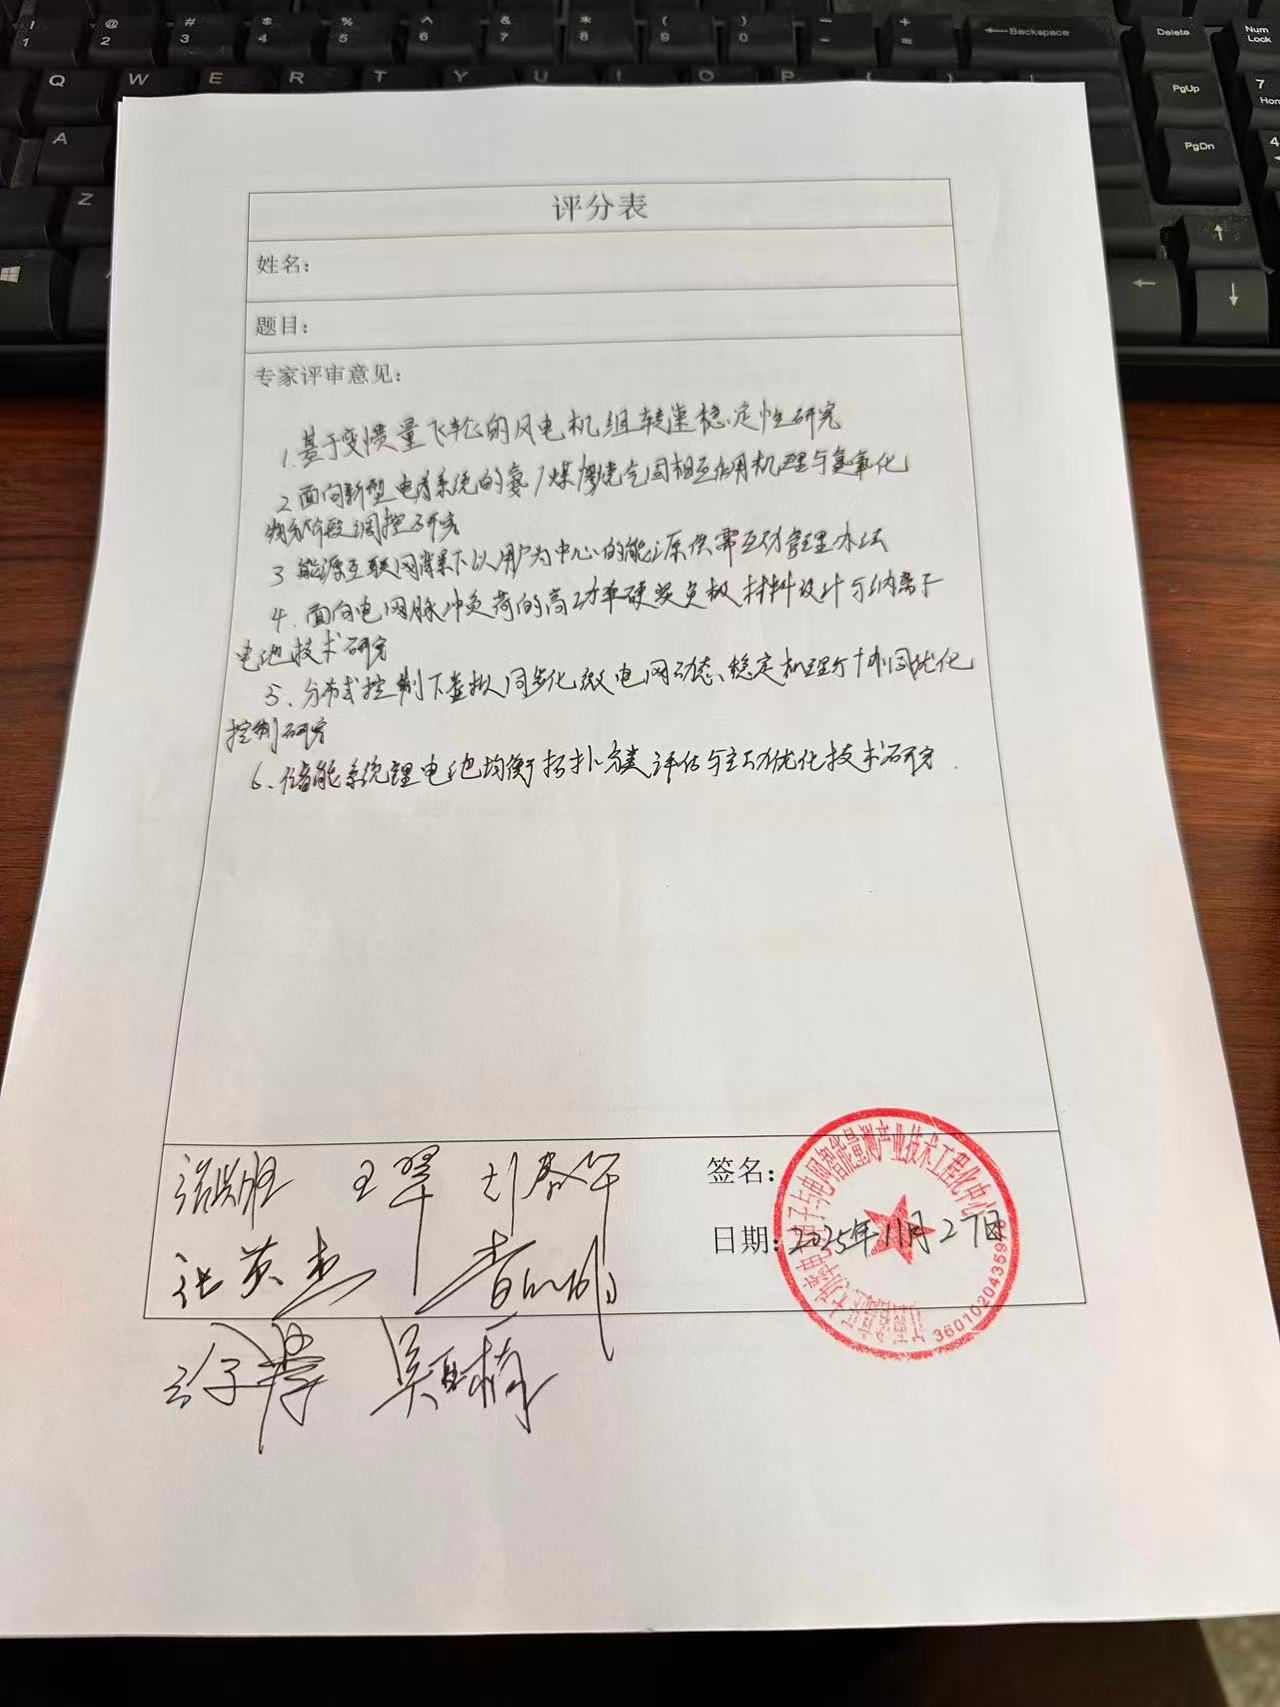 评分表
姓名：
题目：
专家评审意见：
1.基于变惯量飞轮的风电机组转速稳定性研究
2 面向新型电力系统的氨/煤燃烧气固相互作用机理与氮氧化
物分阶段调控研究
3 能源互联网背景下以用户为中心的能源供需互动管理办法
4.面向电网脉冲负荷的高功率硬炭负极材料设计与钠离子
电池技术研究
5、分布式控制下虚拟同步化微电网动态、稳定机理与协同优化
控制研究
6、储能系统锂电池均衡拓扑分类评估与主动优化技术研究
王翠
张英杰
吴
签名：
日期：2025年11月27日
电网智能量测产业技术工程化中心